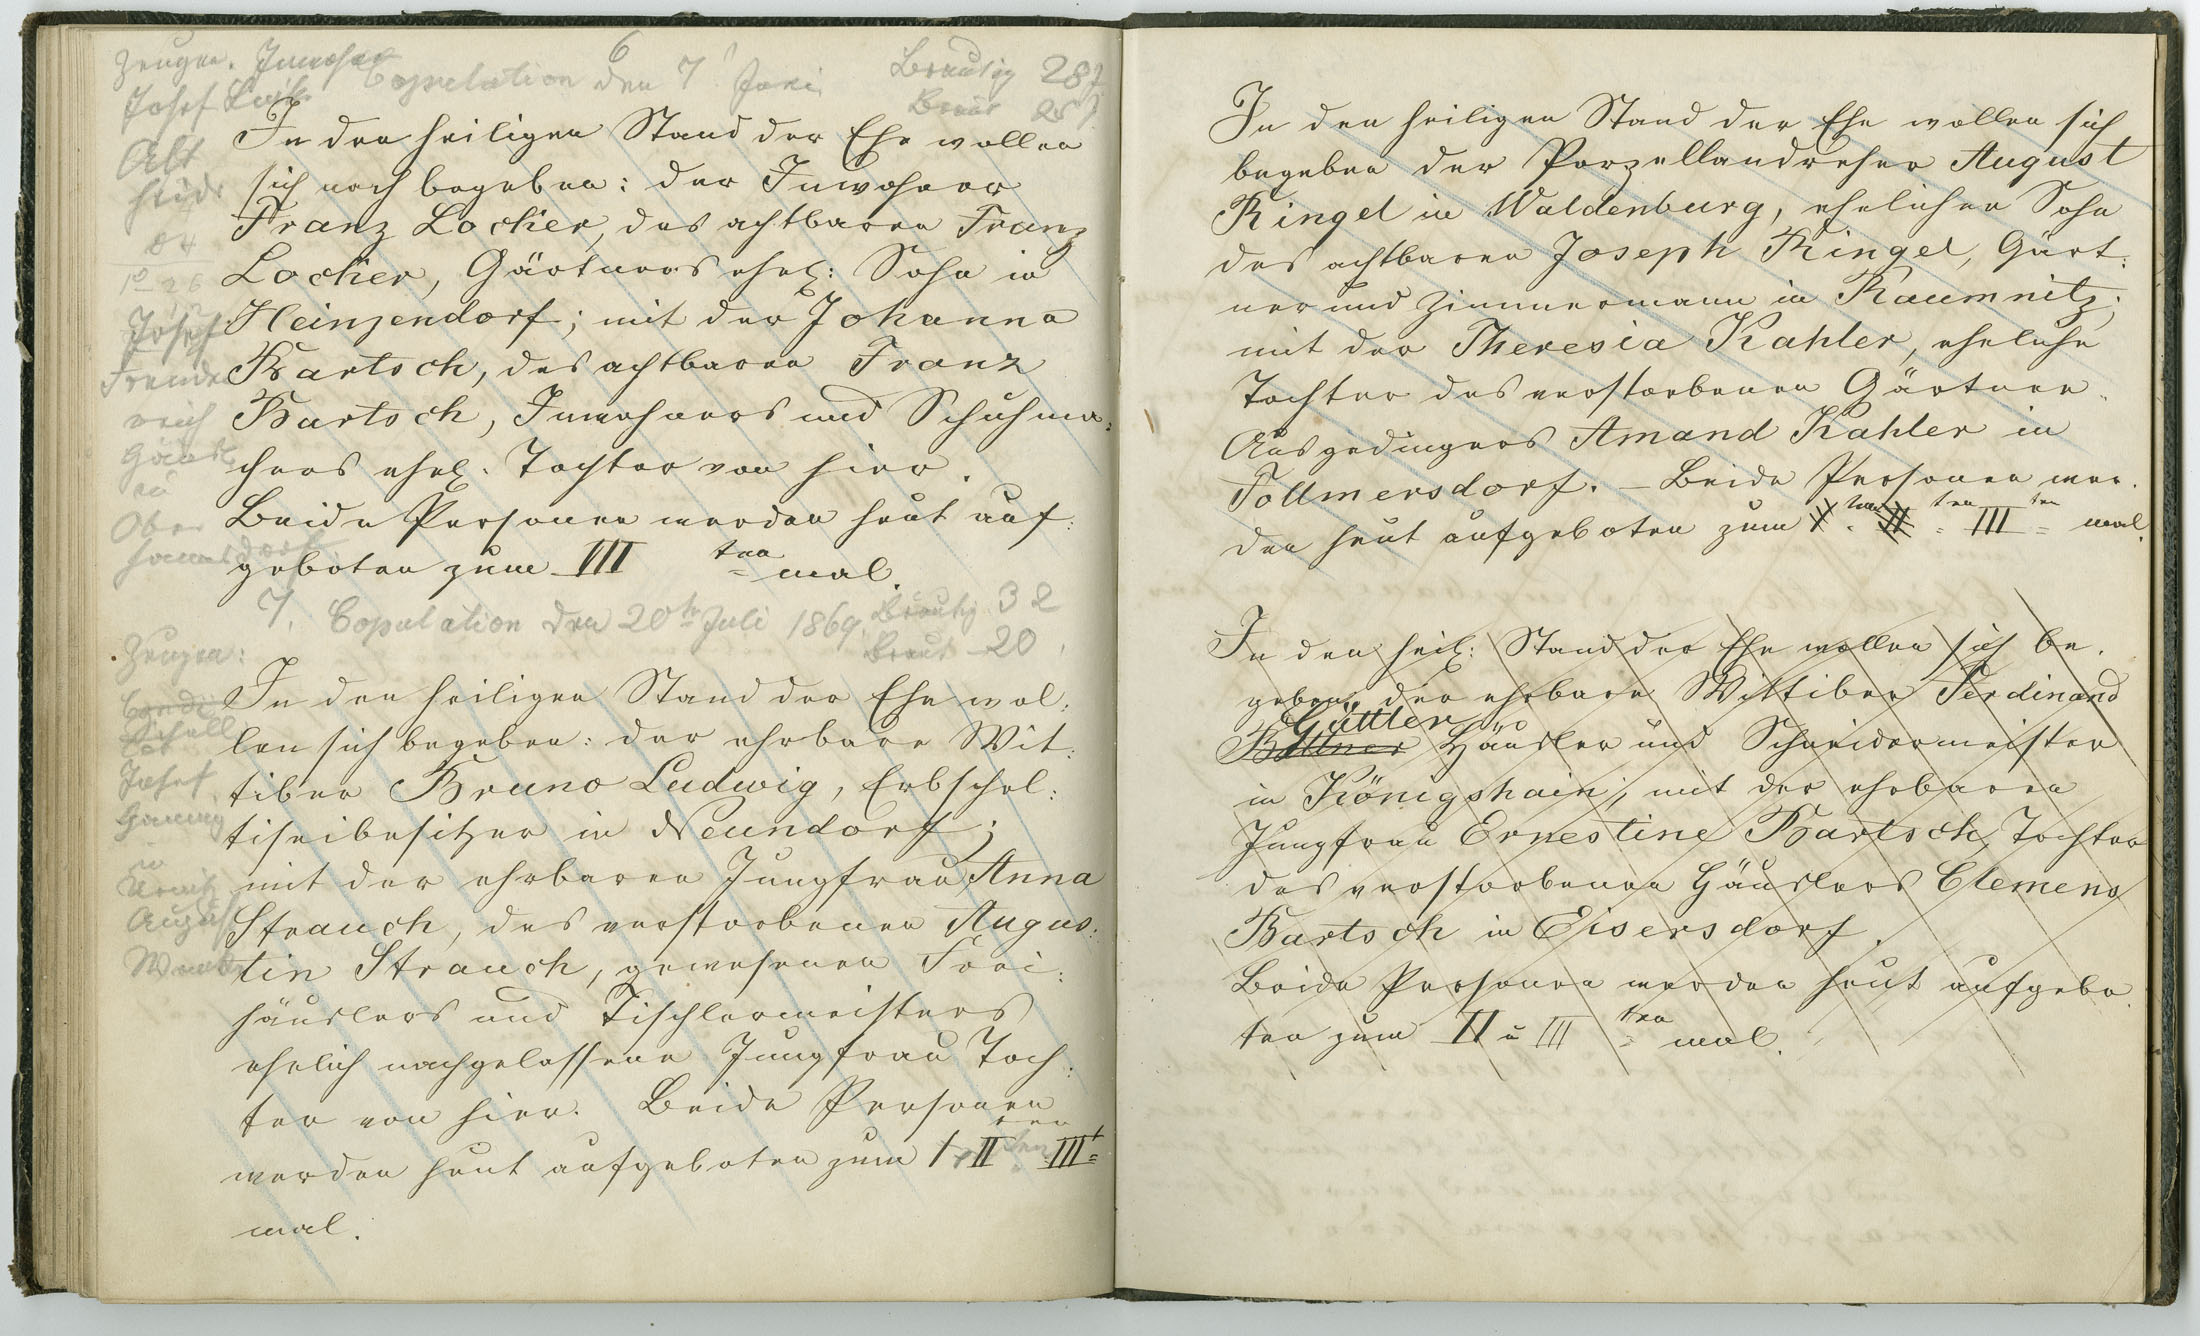 Zeugen. Inwohner
Josef
6
Copulation den 7 Juni
Bräutig 28 J
Braut 25 J
In den heiligen Stand der Ehe wollen
sich noch begeben: der Inwohner
Franz Locher, des achtbaren Franz
Locher, Gärtners ehel: Sohn in
Heinzendorf; mit der Johanna
Bartsch, des achtbaren Franz
Bartsch, Inwohners und Schuhma:
chers ehel. Tochter von hier.
Beide Personen werden heut auf:
geboten zum III ten mal.
Alt
heide
84
Josef
Gärtn
in
Ober
7. Copulation den 20t Juli 1869. Bräutig 32
Braut 20.
Zeugen:
Josef
in
August
In den heiligen Stand der Ehe wol:
len sich begeben: der ehrbare Wit:
tiber Bruno Ludwig, Erbschol:
tiseibesitzer in Neundorf;
mit der ehrbaren Jungfrau Anna
Strauch, des verstorbenen Augus:
tin Strauch, gewesenen Frei:
häuslers und Tischlermeisters
ehelich nachgelassene Jungfrau Toch:
ter von hier. Beide Personen
werden heut aufgeboten zum I II ten III
mal.
In den heiligen Stand der Ehe wollen sich
begeben der Porzellandreher August
Ringel in Waldenburg, ehelicher Sohn
des achtbaren Joseph Ringel, Gärt:
ner und Zimmermann in Raumnitz;
mit der Theresia Kahler, eheliche
Tochter des verstorbenen Gärtner
Ausgedingers Amand Kahler in
Follmersdorf. – Beide Personen wer.
den heut aufgeboten zum I ten II ten III ten mal.
In den heil: Stand der Ehe wollen sich be.
geben, der ehrbare Wittiber Ferdinand
Güttler
Bittner Häusler und Schneidermeister
in Königshain; mit der ehrbaren
Jungfrau Ernestine Bartsch, Tochter
des verstorbenen Häuslers Clemens
Bartsch in Eisersdorf.
Beide Personen werden heut aufgebo
ten zum II u III ten mal.